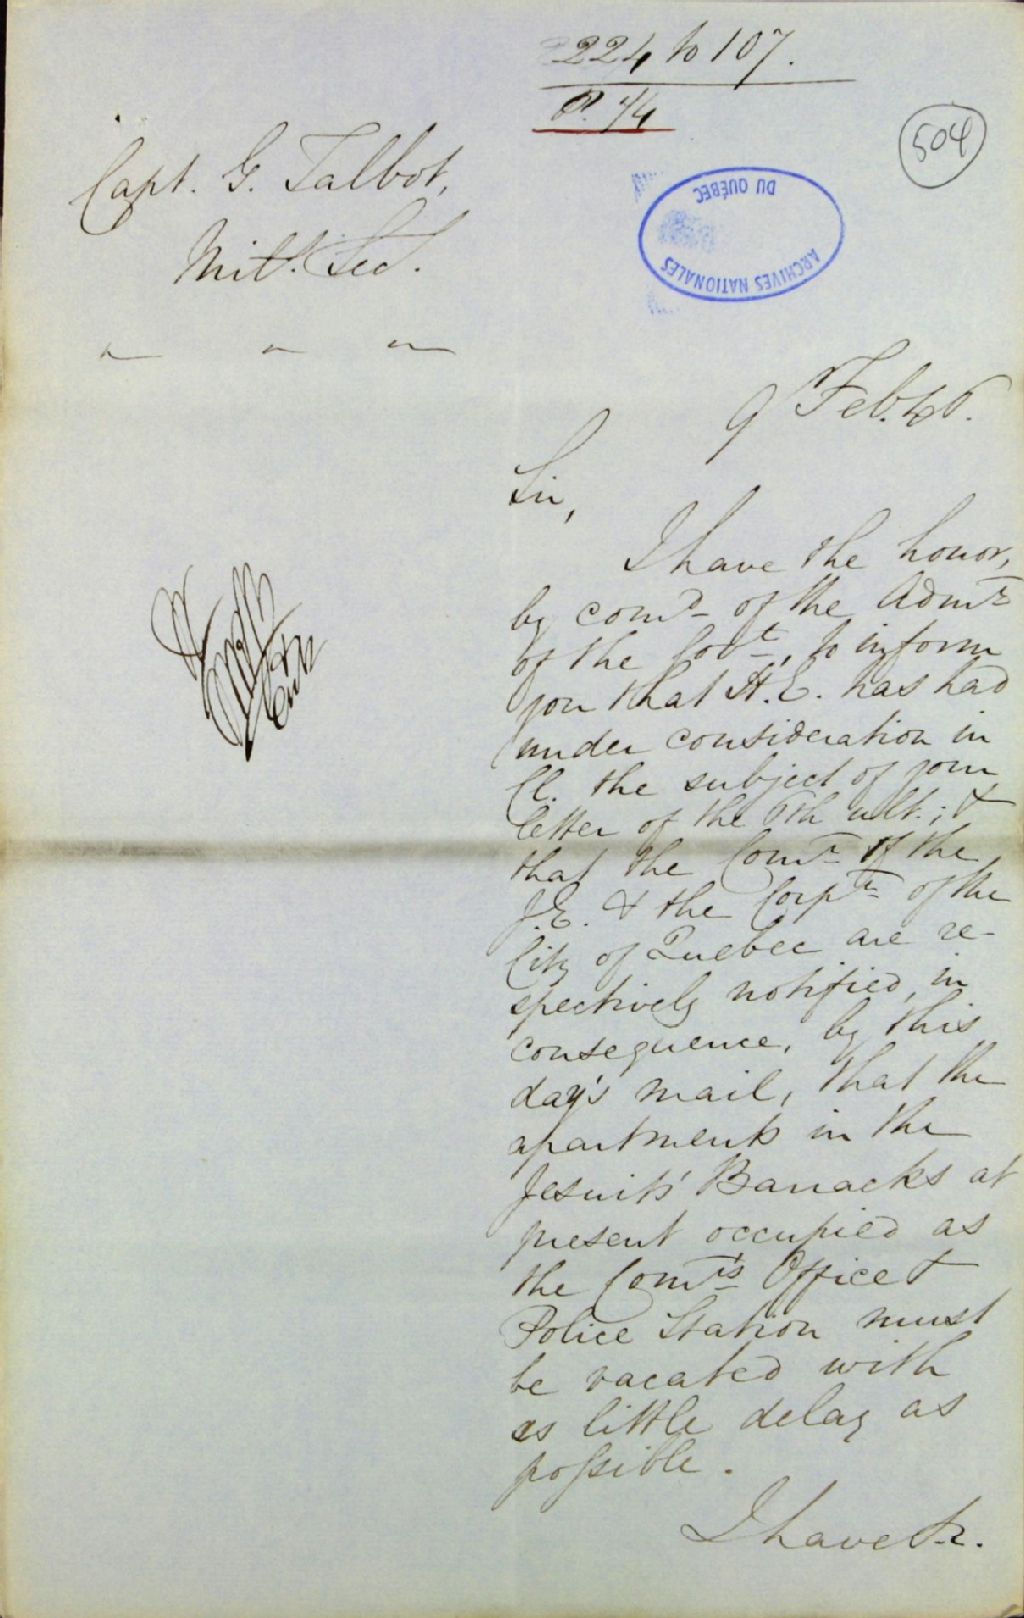 224 to 107.
P. 44
504
Capt. G. Talbot,
Milt. Sec.
ARCHIVES NATIONALES
DU QUÉBEC
9 Feb. 46.
Sir,
I have the honor,
by comd of the Admr
of the Govt, to inform
you that H.E. has had
under consideration in
Cl. the subject of your
letter of the 5th ult.; &
that the Comr of the
J.E. & the Corptn of the
City of Quebec are re-
spectively notified, in
consequence, by this
day's mail, that the
apartments in the
Jesuits' Barracks at
present occupied as
the Comr's Office &
Police Station must
be vacated with
as little delay as
possible.
I have &c.